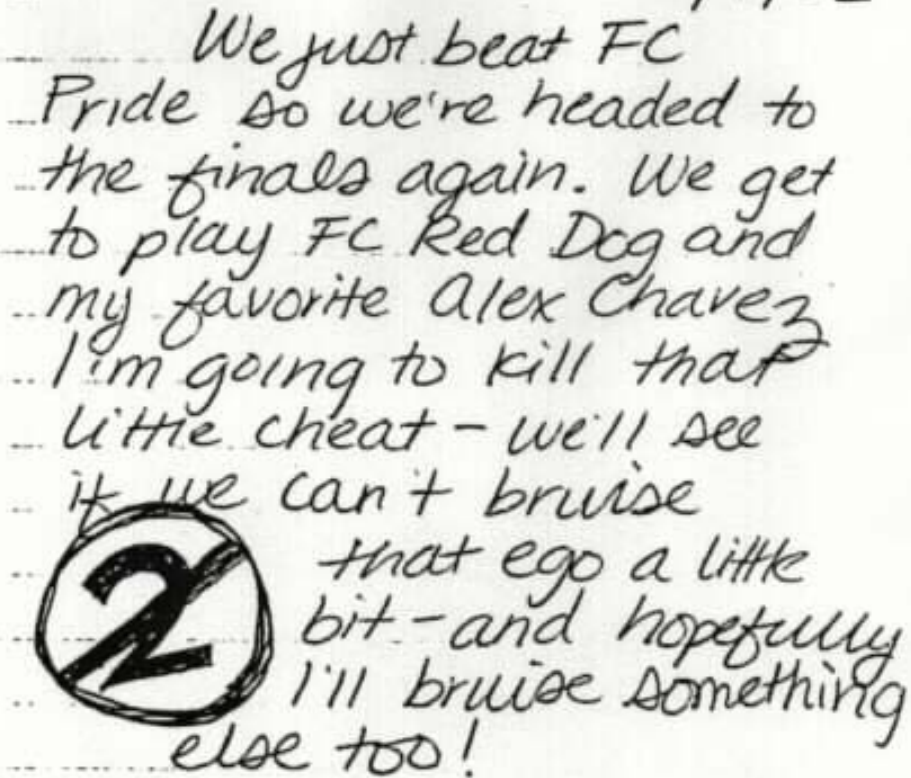 We just beat FC
Pride so we're headed to
the finals again. We get
to play FC Red Dog and
my favorite Alex Chavez
I'm going to kill that
little cheat - we'll see
if we can't bruise
that ego a little
bit - and hopefully
2
I'll bruise something
else too!